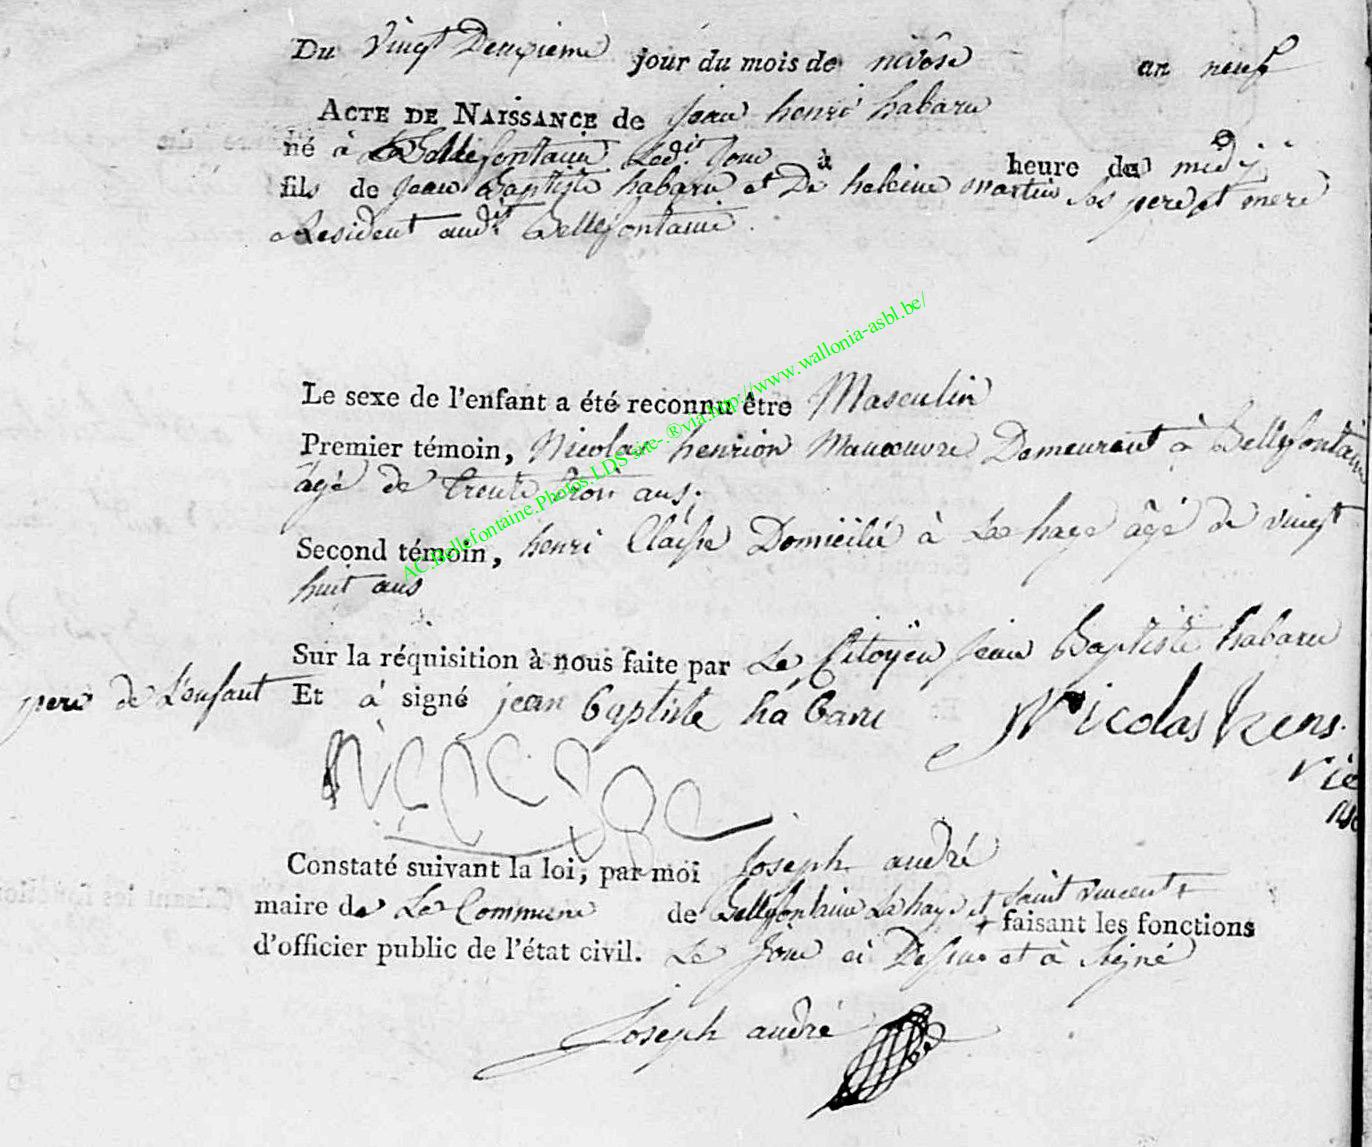 Du vingt Deuxieme jour du mois de nivôse an neuf
ACTE DE NAISSANCE de jean henri habaru
né à Bellefontaine Ledit Jour à heure de midÿ
fils de Jean Baptiste habaru et De heleine martin ses pere et mere
Resident audit Bellefontaine.
Le sexe de l'enfant a été reconnu être Masculin
Premier témoin, Nicolas henrion Manœuvre Demeurant à Bellefontaine
âgé de trente trois ans.
Second témoin, henri Claisse Domicilié à La haye âgé de vingt
huit ans
Sur la réquisition à nous faite par Le Citoÿen Jean Baptiste habaru
pere de L'enfant Et à signé jean baptiste habaru Nicolas hens
rie
Constaté suivant la loi, par moi Joseph andré
maire de La Commune de Bellefontaine Lahaye et Saint Vincent +
+ faisant les fonctions
d'officier public de l'état civil. Le Jour ci Dessus et à Signé
Joseph andré
AC.Bellefontaine.Photos.LDS site-.®via.http://www.wallonia-asbl.be/